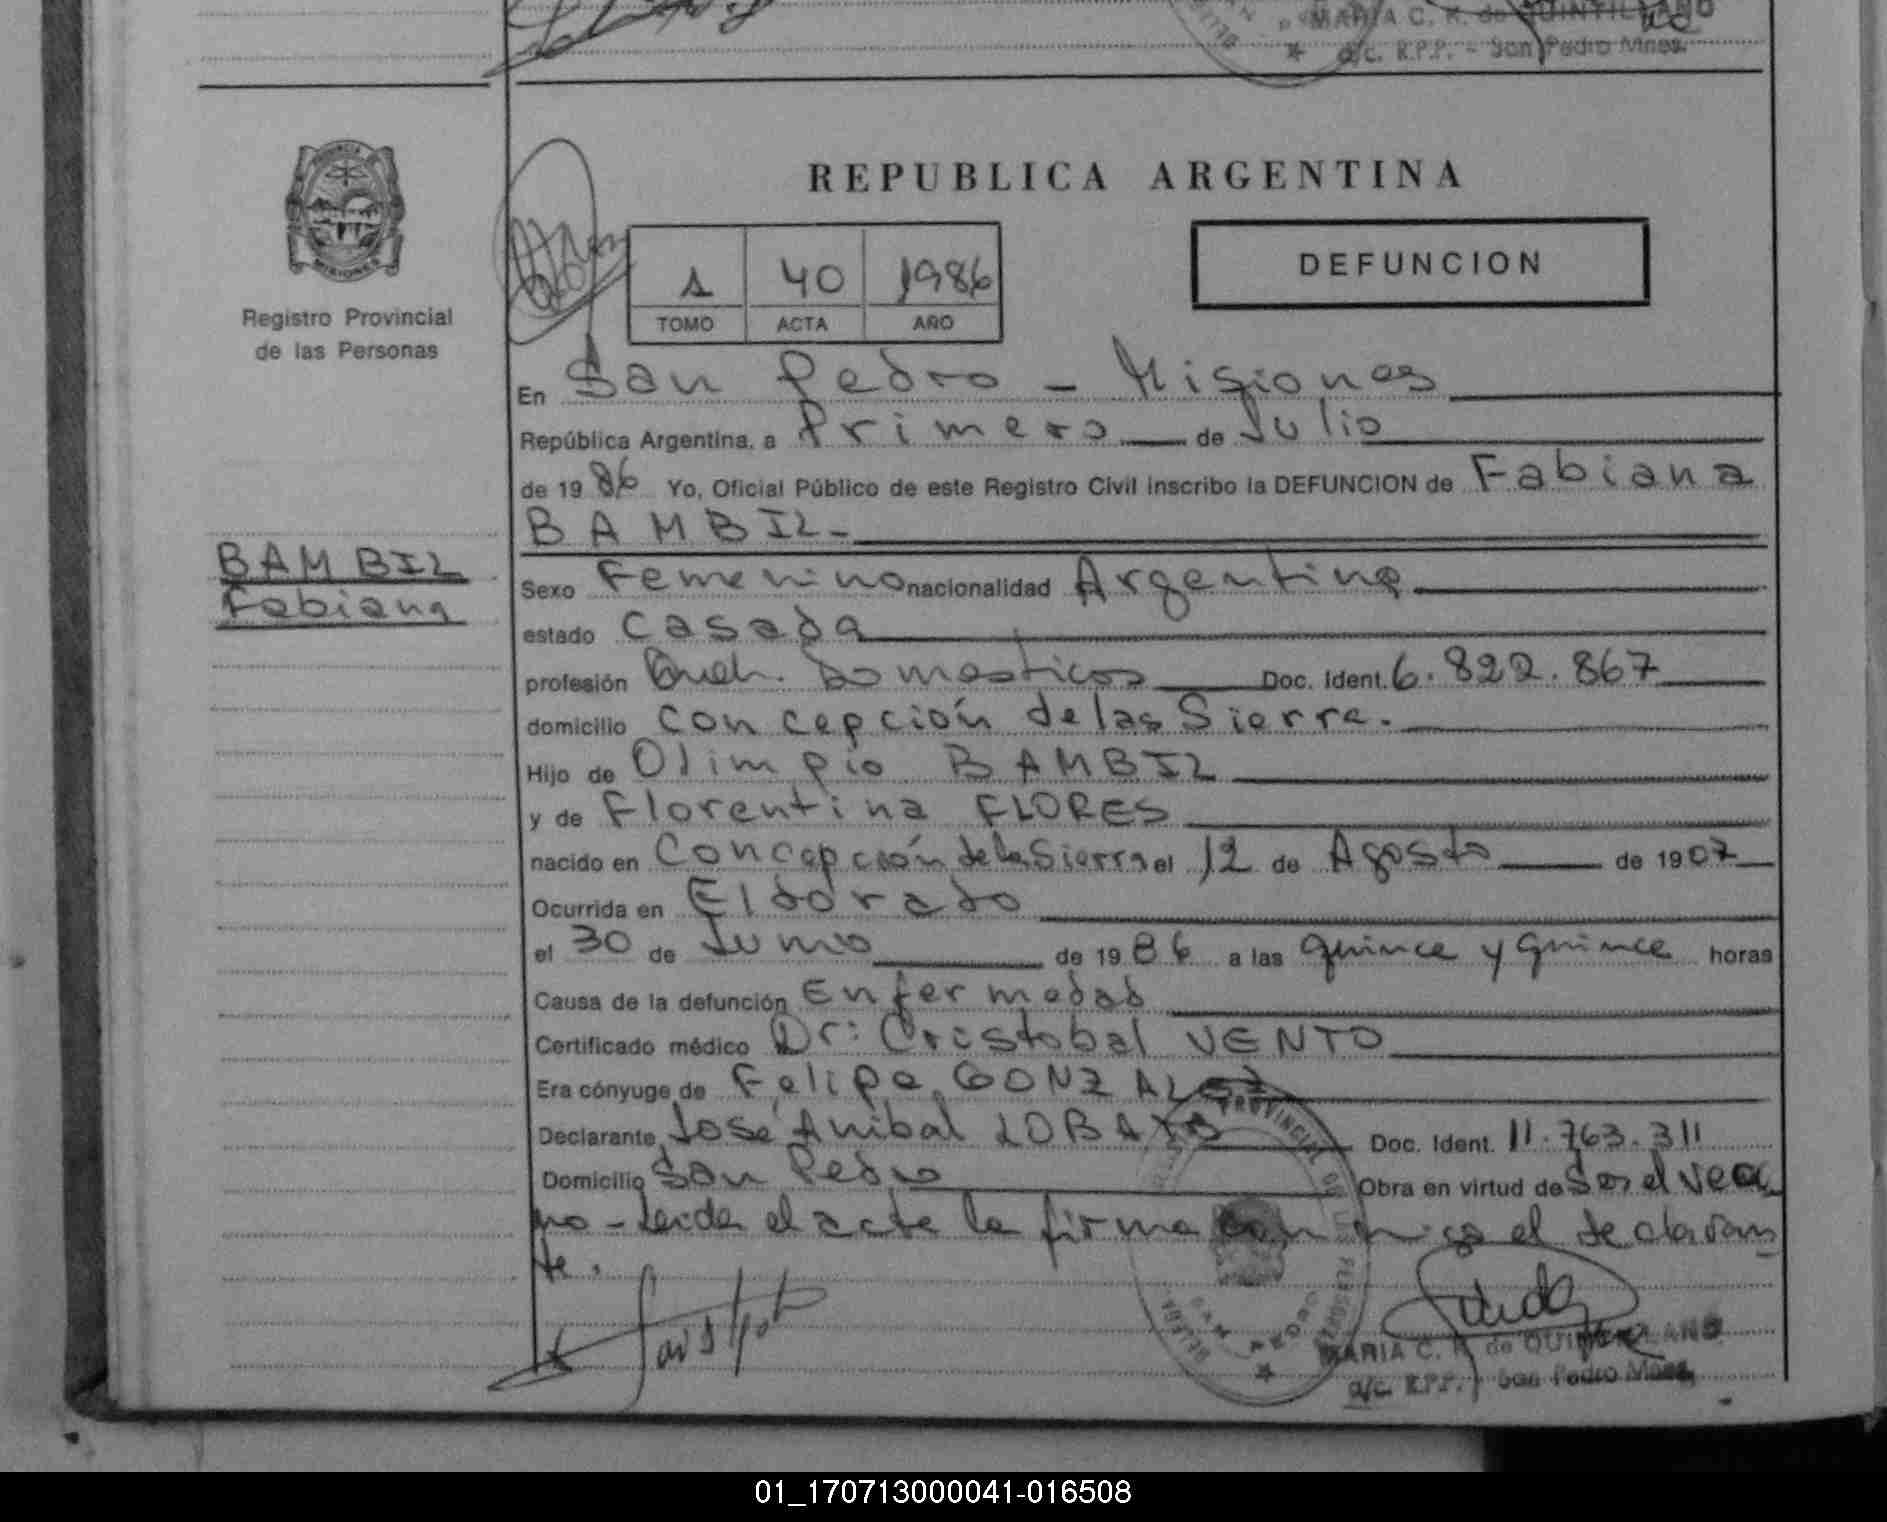 MARIA C. R. de QUINTILLANO
a/c. R.P.P. - San Pedro Mnes.
PROVINCIA
MISIONES
Registro Provincial
de las Personas
REPUBLICA ARGENTINA
1 40 1986
TOMO ACTA AÑO
DEFUNCION
En San Pedro - Misiones
República Argentina, a Primero de Julio
de 1986 Yo, Oficial Público de este Registro Civil inscribo la DEFUNCION de Fabiana
BAMBIL-
BAMBIL
Fabiana
Sexo Femenino nacionalidad Argentina
estado casada
profesión Queh. Domesticos Doc. Ident. 6.822.867
domicilio concepción de las Sierra.
Hijo de Olimpio BAMBIL
y de Florentina FLORES
nacido en Concepción de la Sierra el 12 de Agosto de 1907
Ocurrida en Eldorado
el 30 de Junio de 1986 a las quince y quince horas
Causa de la defunción Enfermedad
Certificado médico Dr: Cristobal VENTO
Era cónyuge de Felipe GONZALEZ
Declarante José Anibal LOBATO Doc. Ident. 11.763.311
Domicilio San Pedro Obra en virtud de Ser el veci
no - Leida el acta la firma con migo el declaran
te.
MARIA C. R. de QUINTILLANO
a/c. R.P.P. San Pedro Mnes.
01_170713000041-016508